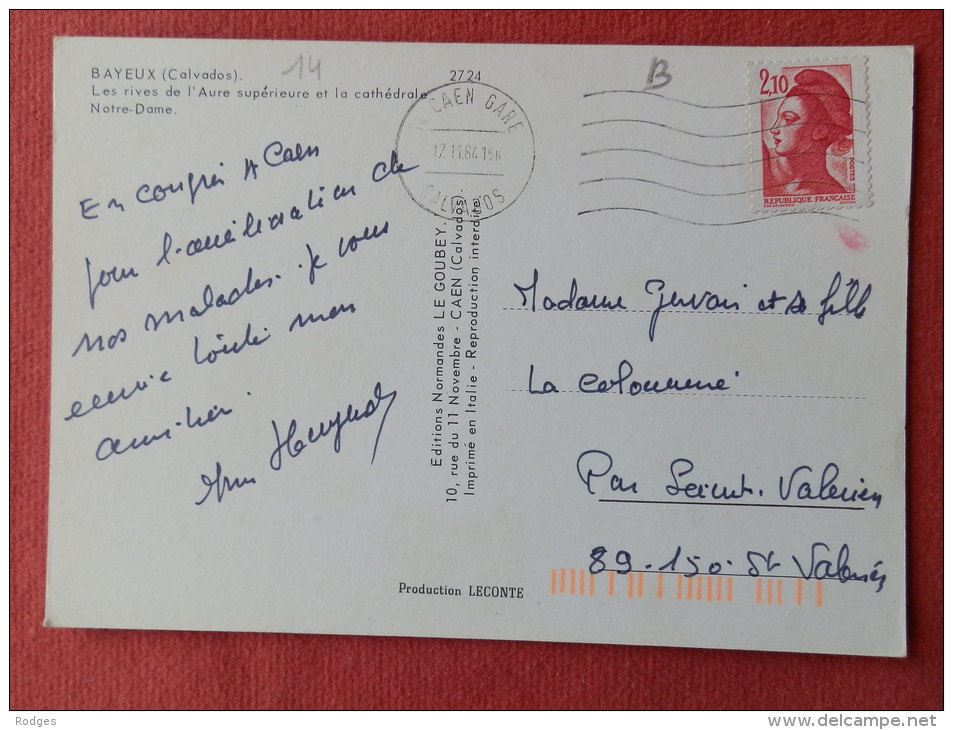 BAYEUX (Calvados).
Les rives de l'Aure supérieure et la cathédrale
Notre-Dame.
14
2724
B
CAEN GARE
17 11 84 15H
CALVADOS
2,10
POSTES
REPUBLIQUE FRANÇAISE
En congrès A Caen
pour l'amélioration de
nos malades. je vous
envoie toute mon
amitié.
Editions Normandes LE GOUBEY
10, rue du 11 Novembre - CAEN (Calvados).
Imprimé en Italie - Reproduction interdite.
Madame Gervais et sa fille
La colommerie
Par Saint. Valerien
89.150. St Valerien
Production LECONTE
Rodges
http://www.delcampe.net